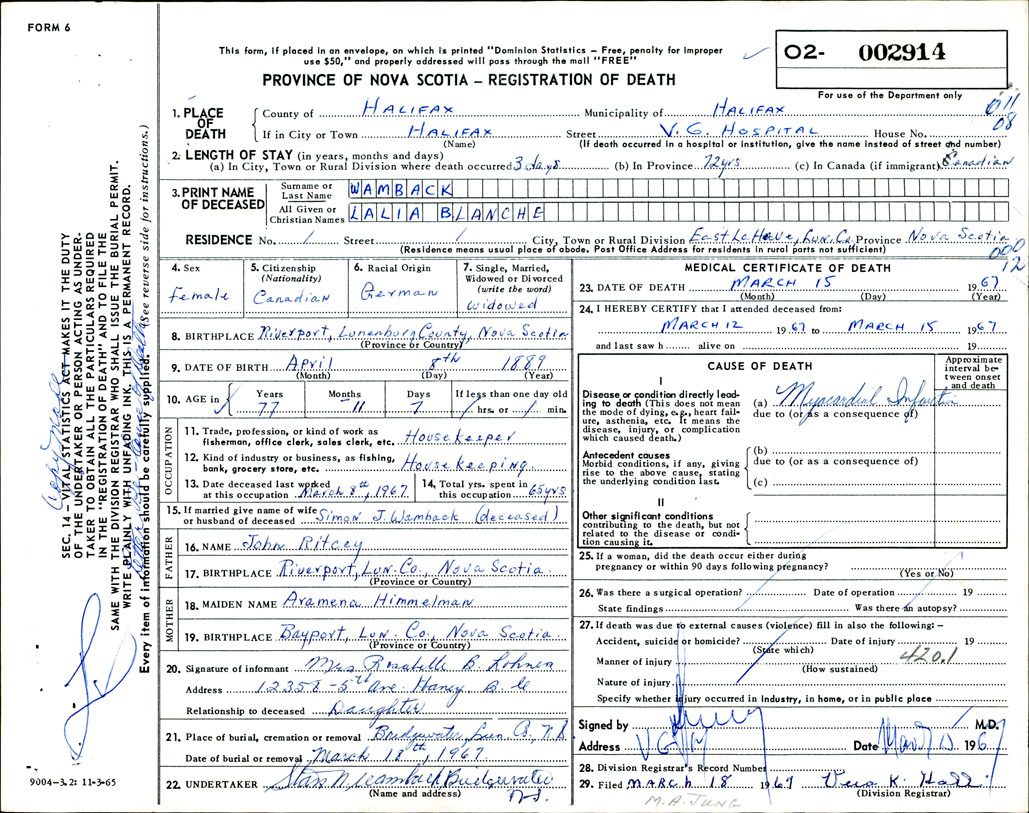 FORM 6
This form, if placed in an envelope, on which is printed "Dominion Statistics – Free, penalty for improper
use $50," and properly addressed will pass through the mail "FREE"
PROVINCE OF NOVA SCOTIA – REGISTRATION OF DEATH
02- 002914
For use of the Department only
011
08
1. PLACE OF DEATH
County of HALIFAX Municipality of HALIFAX
If in City or Town HALIFAX Street V. G. HOSPITAL House No.
(Name) (If death occurred in a hospital or institution, give the name instead of street and number)
2. LENGTH OF STAY (in years, months and days)
(a) In City, Town or Rural Division where death occurred 3 days (b) In Province 72yrs (c) In Canada (if immigrant) Canadian
3. PRINT NAME OF DECEASED
Surname or Last Name WAMBACK
All Given or Christian Names LALIA BLANCHE
RESIDENCE No. / Street / City, Town or Rural Division East LaHave, Lun. Co. Province Nova Scotia
(Residence means usual place of abode. Post Office Address for residents in rural parts not sufficient)
000
12
4. Sex female
5. Citizenship (Nationality) Canadian
6. Racial Origin German
7. Single, Married, Widowed or Divorced (write the word) widowed
8. BIRTHPLACE Riverport, Lunenburg County, Nova Scotia
(Province or Country)
9. DATE OF BIRTH April 8th 1889
(Month) (Day) (Year)
10. AGE in Years Months Days If less than one day old
77 11 7 / hrs. or / min.
OCCUPATION
11. Trade, profession, or kind of work as
fisherman, office clerk, sales clerk, etc. Housekeeper
12. Kind of industry or business, as fishing,
bank, grocery store, etc. Housekeeping.
13. Date deceased last worked
at this occupation March 8th, 1967
14. Total yrs. spent in
this occupation 65yrs
15. If married give name of wife
or husband of deceased Simon J. Wamback (deceased)
FATHER
16. NAME John Ritcey
17. BIRTHPLACE Riverport, Lun. Co., Nova Scotia.
(Province or Country)
MOTHER
18. MAIDEN NAME Aramena Himmelman
19. BIRTHPLACE Bayport, Lun. Co., Nova Scotia.
(Province or Country)
20. Signature of informant Mrs Rosabelle B. Lohnes
Address 12358 - 5th Ave. Haney B. C
Relationship to deceased Daughter
21. Place of burial, cremation or removal Bridgewater Lun Co, N.S
Date of burial or removal March 18th, 1967.
22. UNDERTAKER Wamback Bridgewater
(Name and address) N.S.
MEDICAL CERTIFICATE OF DEATH
23. DATE OF DEATH MARCH 15 1967
(Month) (Day) (Year)
24. I HEREBY CERTIFY that I attended deceased from:
MARCH 12 1967 to MARCH 15 1967
and last saw h alive on 19
CAUSE OF DEATH
Approximate interval between onset and death
I
Disease or condition directly leading to death (This does not mean the mode of dying, e.g., heart failure, asthenia, etc. It means the disease, injury, or complication which caused death.)
(a) Myocardial Infarction
due to (or as a consequence of)
Antecedent causes
Morbid conditions, if any, giving rise to the above cause, stating the underlying condition last.
(b)
due to (or as a consequence of)
(c)
II
Other significant conditions
contributing to the death, but not related to the disease or condition causing it.
25. If a woman, did the death occur either during
pregnancy or within 90 days following pregnancy?
(Yes or No)
26. Was there a surgical operation? Date of operation 19
State findings Was there an autopsy?
27. If death was due to external causes (violence) fill in also the following: –
Accident, suicide or homicide? Date of injury 19
(State which)
420.1
Manner of injury
(How sustained)
Nature of injury
Specify whether injury occurred in industry, in home, or in public place
Signed by M.D.
Address V G H Date 196
28. Division Registrar's Record Number
29. Filed MARCH 18 1967
(Division Registrar)
M. A. JUNG
SEC. 14 – VITAL STATISTICS ACT MAKES IT THE DUTY
OF THE UNDERTAKER OR PERSON ACTING AS UNDER-
TAKER TO OBTAIN ALL THE PARTICULARS REQUIRED
IN THE "REGISTRATION OF DEATH" AND TO FILE THE
SAME WITH THE DIVISION REGISTRAR WHO SHALL ISSUE THE BURIAL PERMIT.
WRITE PLAINLY WITH UNFADING INK. THIS IS A PERMANENT RECORD.
Every item of information should be carefully supplied. (See reverse side for instructions.)
9004-3.2: 11-3-65